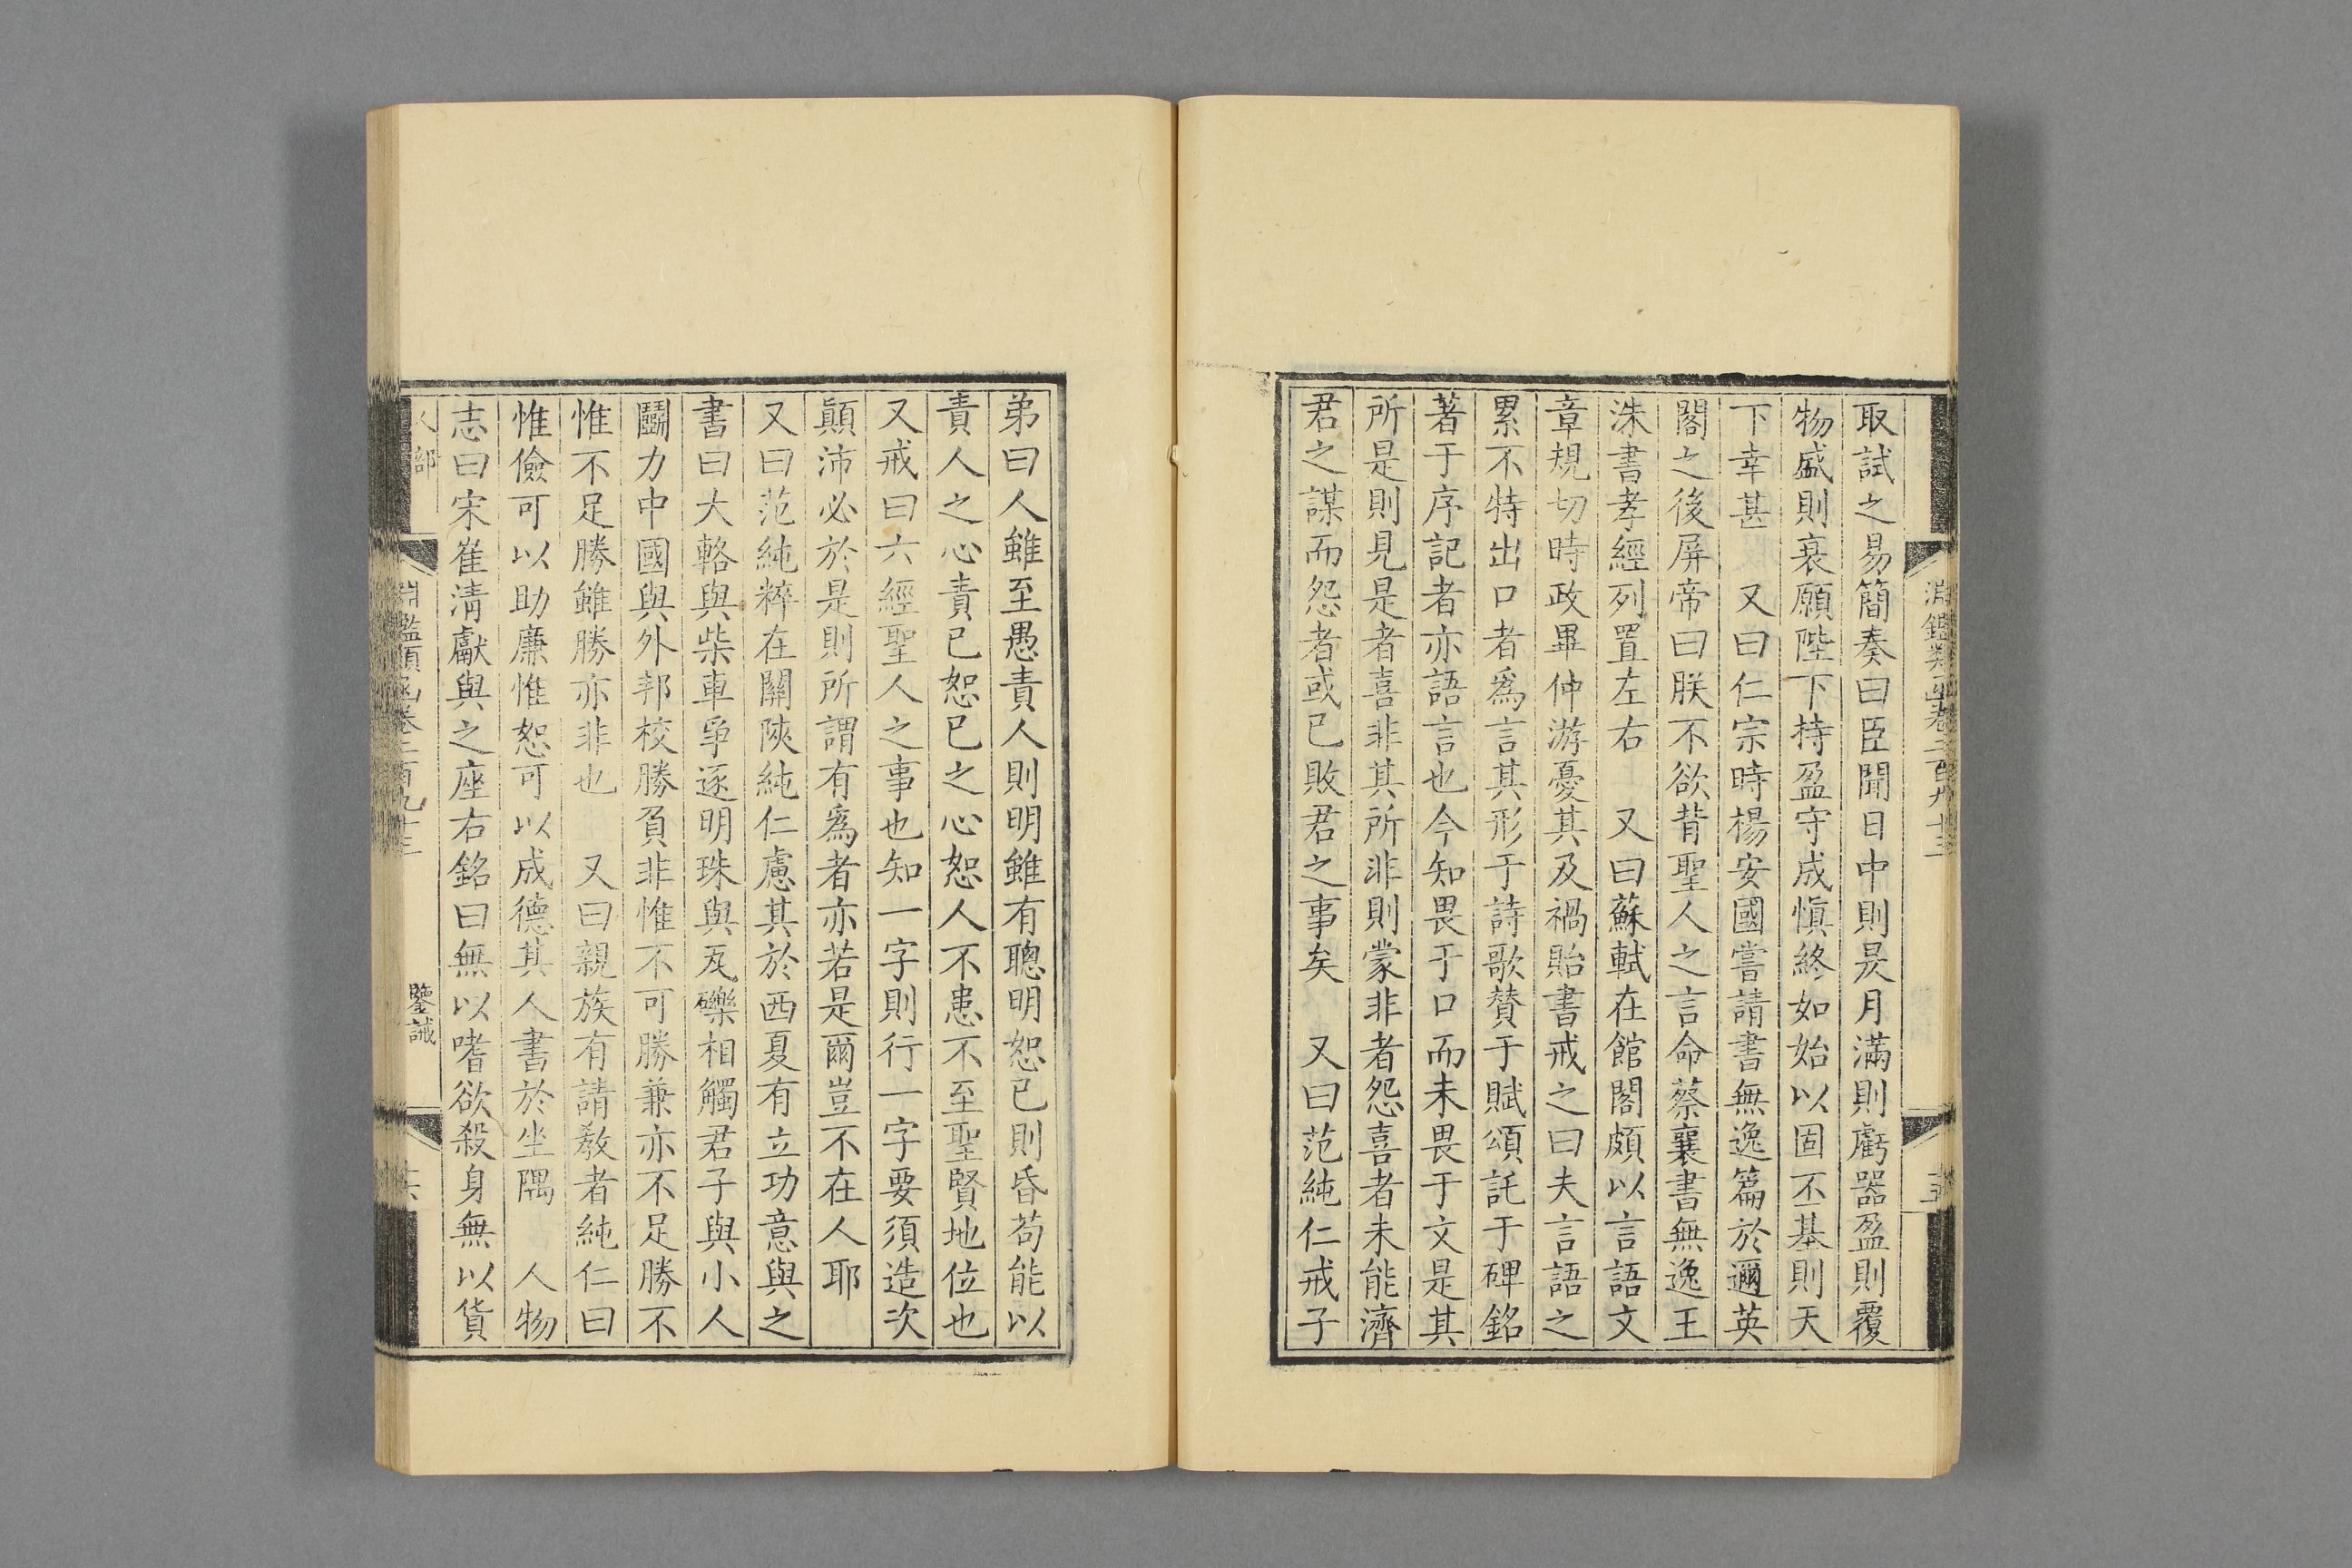 淵鑑類函卷二百九十三
取試之易簡奏曰臣聞日中則昃月滿則虧器盈則覆
物盛則衰願陛下持盈守成慎終如始以固丕基則天
下幸甚　又曰仁宗時楊安國嘗請書無逸篇於邇英
閣之後屏帝曰朕不欲背聖人之言命蔡襄書無逸王
洙書孝經列置左右　又曰蘇軾在館閣頗以言語文
章規切時政畢仲游憂其及禍貽書戒之曰夫言語之
累不特出口者為言其形于詩歌贊于賦頌託于碑銘
著于序記者亦語言也今知畏于口而未畏于文是其
所是則見是者喜非其所非則蒙非者怨喜者未能濟
君之謀而怨者或已敗君之事矣　又曰范純仁戒子
弟曰人雖至愚責人則明雖有聰明恕已則昏苟能以
責人之心責已恕已之心恕人不患不至聖賢地位也
又戒曰六經聖人之事也知一字則行一字要須造次
顛沛必於是則所謂有為者亦若是爾豈不在人耶
又曰范純粹在關陝純仁慮其於西夏有立功意與之
書曰大輅與柴車爭逐明珠與瓦礫相觸君子與小人
鬭力中國與外邦校勝負非惟不可勝兼亦不足勝不
惟不足勝雖勝亦非也　又曰親族有請教者純仁曰
惟儉可以助廉惟恕可以成德其人書於坐隅　人物
志曰宋崔清獻與之座右銘曰無以嗜欲殺身無以貨
人部　淵鑑類函卷二百九十三　鑒誡